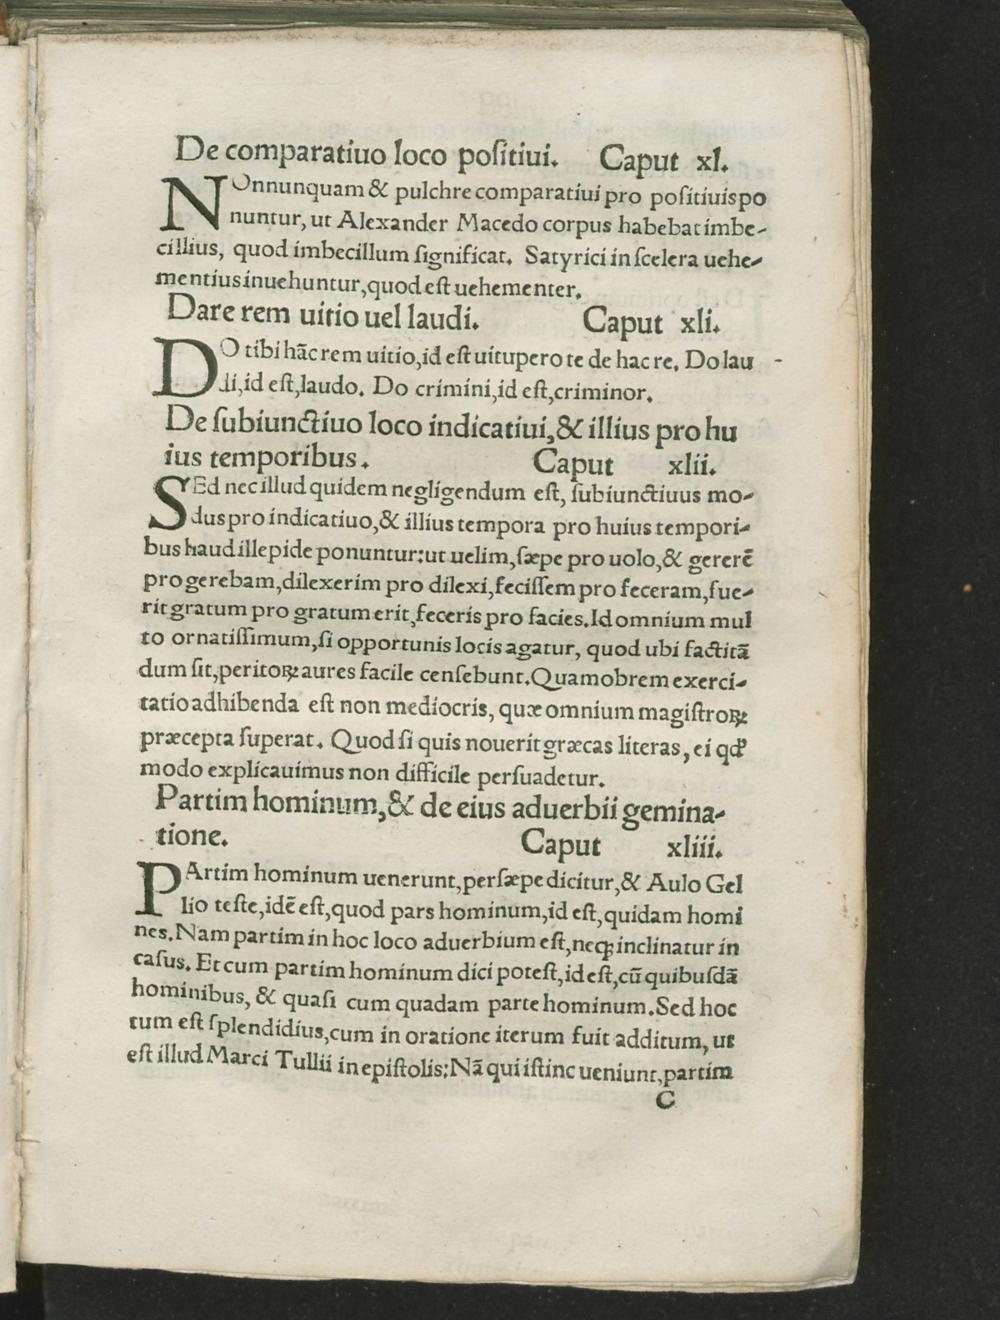 De comparatiuo loco poſitiui. Caput xl.
NOnnunquam & pulchre comparatiui pro poſitiuis po
nuntur, ut Alexander Macedo corpus habebat imbe-
cillius, quod imbecillum ſignificat. Satyrici in ſcelera uehe-
mentius inuehuntur, quod eſt uehementer.
Dare rem uitio uel laudi. Caput xli.
DO tibi hãc rem uitio, id eſt uitupero te de hac re. Do lau -
di, id eſt, laudo. Do crimini, id eſt, criminor.
De ſubiunctiuo loco indicatiui, & illius pro hu
ius temporibus. Caput xlii.
SEd nec illud quidem negligendum eſt, ſubiunctiuus mo-
dus pro indicatiuo, & illius tempora pro huius tempori-
bus haud illepide ponuntur: ut uelim, ſæpe pro uolo, & gererẽ
pro gerebam, dilexerim pro dilexi, feciſſem pro feceram, fue-
rit gratum pro gratum erit, feceris pro facies. Id omnium mul
to ornatiſſimum, ſi opportunis locis agatur, quod ubi factitã
dum ſit, peritoꝝ aures facile cenſebunt. Quamobrem exerci-
tatio adhibenda eſt non mediocris, quæ omnium magiſtroꝝ
præcepta ſuperat. Quod ſi quis nouerit græcas literas, ei qđ
modo explicauimus non difficile perſuadetur.
Partim hominum, & de eius aduerbii gemina-
tione. Caput xliii.
PArtim hominum uenerunt, perſæpe dicitur, & Aulo Gel
lio teſte, idẽ eſt, quod pars hominum, id eſt, quidam homi
nes. Nam partim in hoc loco aduerbium eſt, neqꝫ inclinatur in
caſus. Et cum partim hominum dici poteſt, id eſt, cũ quibuſdã
hominibus, & quaſi cum quadam parte hominum. Sed hoc
tum eſt ſplendidius, cum in oratione iterum fuit additum, ut
eſt illud Marci Tullii in epiſtolis: Nã qui iſtinc ueniunt, partim
C